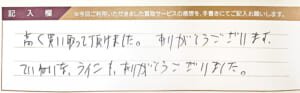 記入欄 ※今回ご利用いただきました買取サービスの感想を、手書きにてご記入お願いします。
高く買い取って頂けました。ありがとうございます。
ていねいな、ラインも、ありがとうございました。